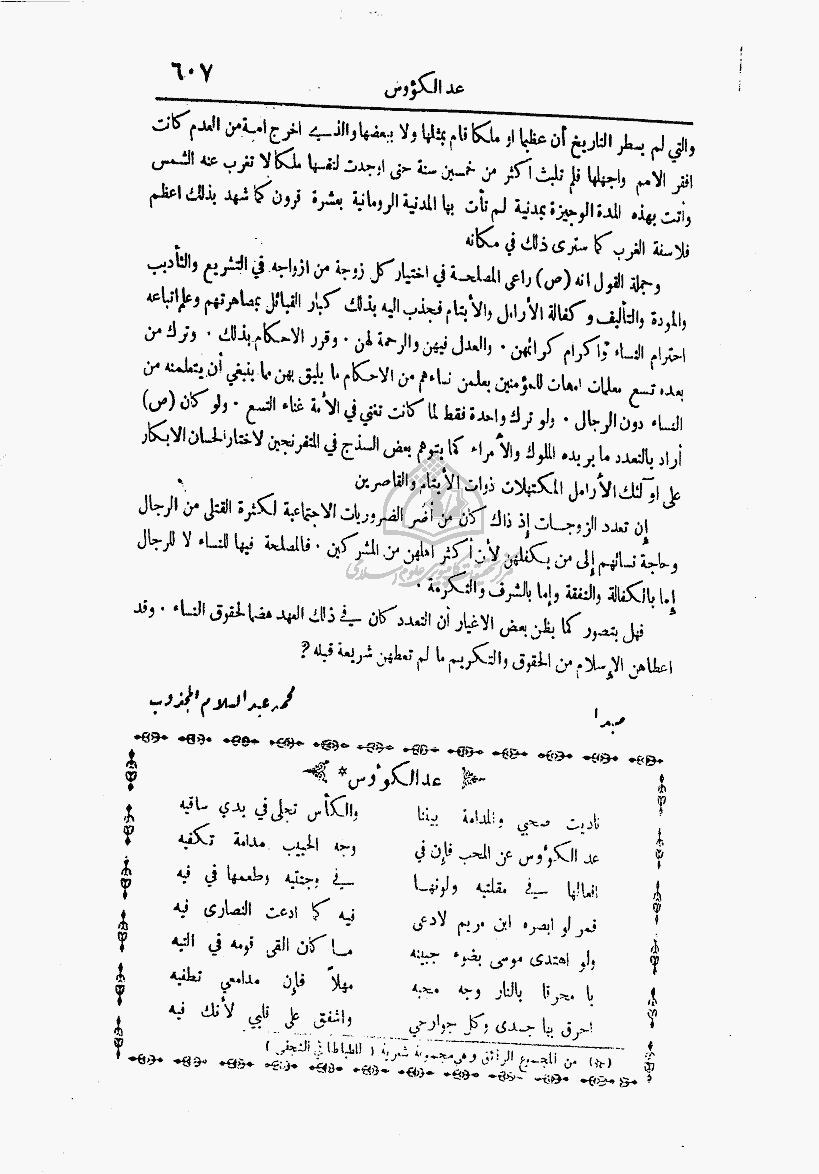 عد الكؤوس
٦٠٧
والتي لم يسطر التاريخ أن عظيما او ملكا قام بمثلها ولا ببعضها والذي اخرج امة من العدم كانت
افقر الامم واجهلها فلم تلبث أكثر من خمسين سنة حتى اوجدت لنفسها ملكا لا تغرب عنه الشمس
وأتت بهذه المدة الوجيزة بمدنية لم تأت بها المدنية الرومانية بعشرة قرون كما شهد بذلك اعظم
فلاسفة الغرب كما سترى ذلك في مكانه
وجملة القول انه (ص) راعى المصلحة في اختيار كل زوجة من ازواجه في التشريع والتأديب
والمودة والتأليف وكفالة الأرامل والأيتام فجذب اليه بذلك كبار القبائل بمصاهرتهم وعلم اتباعه
احترام النساء واكرام كرائهن ٠ والعدل فيهن والرحمة لهن ٠ وقرر الاحكام بذلك ٠ وترك من
بعده تسع معلمات امهات للمؤمنين يعلمن نساءهم من الاحكام ما يليق بهن مما ينبغي أن يتعلمنه من
النساء دون الرجال ٠ ولو ترك واحدة فقط لما كانت تغني في الأمة غناء التسع ٠ ولو كان (ص)
أراد بالتعدد ما يريده الملوك والأمراء كما يتوهم بعض السذج في المتفرنجين لاختار الحسان الابكار
على اولئك الأرامل المكتهلات ذوات الأيتام والقاصرين
إن تعدد الزوجات إذ ذاك كان من الضروريات الاجتماعية لكثرة القتلى من الرجال
وحاجة نسائهم إلى من يكفلهن لأن أكثر اهلهن من المشركين ٠ فالمصلحة فيها للنساء لا للرجال
إما بالكفالة والنفقة وإما بالشرف والتكرمة ٠
فهل يتصور كما يظن بعض الاغيار أن التعدد كان في ذلك العهد هضما لحقوق النساء ٠ وقد
اعطاهن الإسلام من الحقوق والتكريم ما لم تعطهن شريعة قبله ؟
صيدا محمد عبد السلام المجذوب
عد الكؤوس *
ناديت صحبي والمدامة بيننا والكأس تجلى في يدي ساقيه
عد الكؤوس عن المحب فإن في وجه الحبيب مدامة تكفيه
افعالها في مقلتيه ولونها في وجنتيه وطعمها في فيه
قمر لو ابصره ابن مريم لادعى فيه كما ادعت النصارى فيه
ولو اهتدى موسى بضوء جبينه ما كان القى قومه في التيه
يا محرقا بالنار وجه محبه مهلاً فإن مدامعي تطفيه
احرق بها جسدي وكل جوارحي واشفق على قلبي لأنك فيه
(*) من المجموع الرائق وهي مجموعة شعرية ( للطباطبائي النجفي )